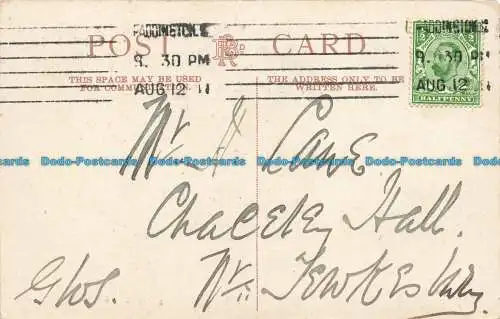 PADDINGTON. W.
9. 30 PM
AUG 12 11
PADDINGTON. W.
9. 30 PM
AUG 12 11
POST CARD
THIS SPACE MAY BE USED
FOR COMMUNICATION.
THE ADDRESS ONLY TO BE
WRITTEN HERE.
HALFPENNY
Mr H Lane
Chaceley Hall.
Glos. Nr. Tewkesbury
Dodo-Postcards Dodo-Postcards Dodo-Postcards Dodo-Postcards